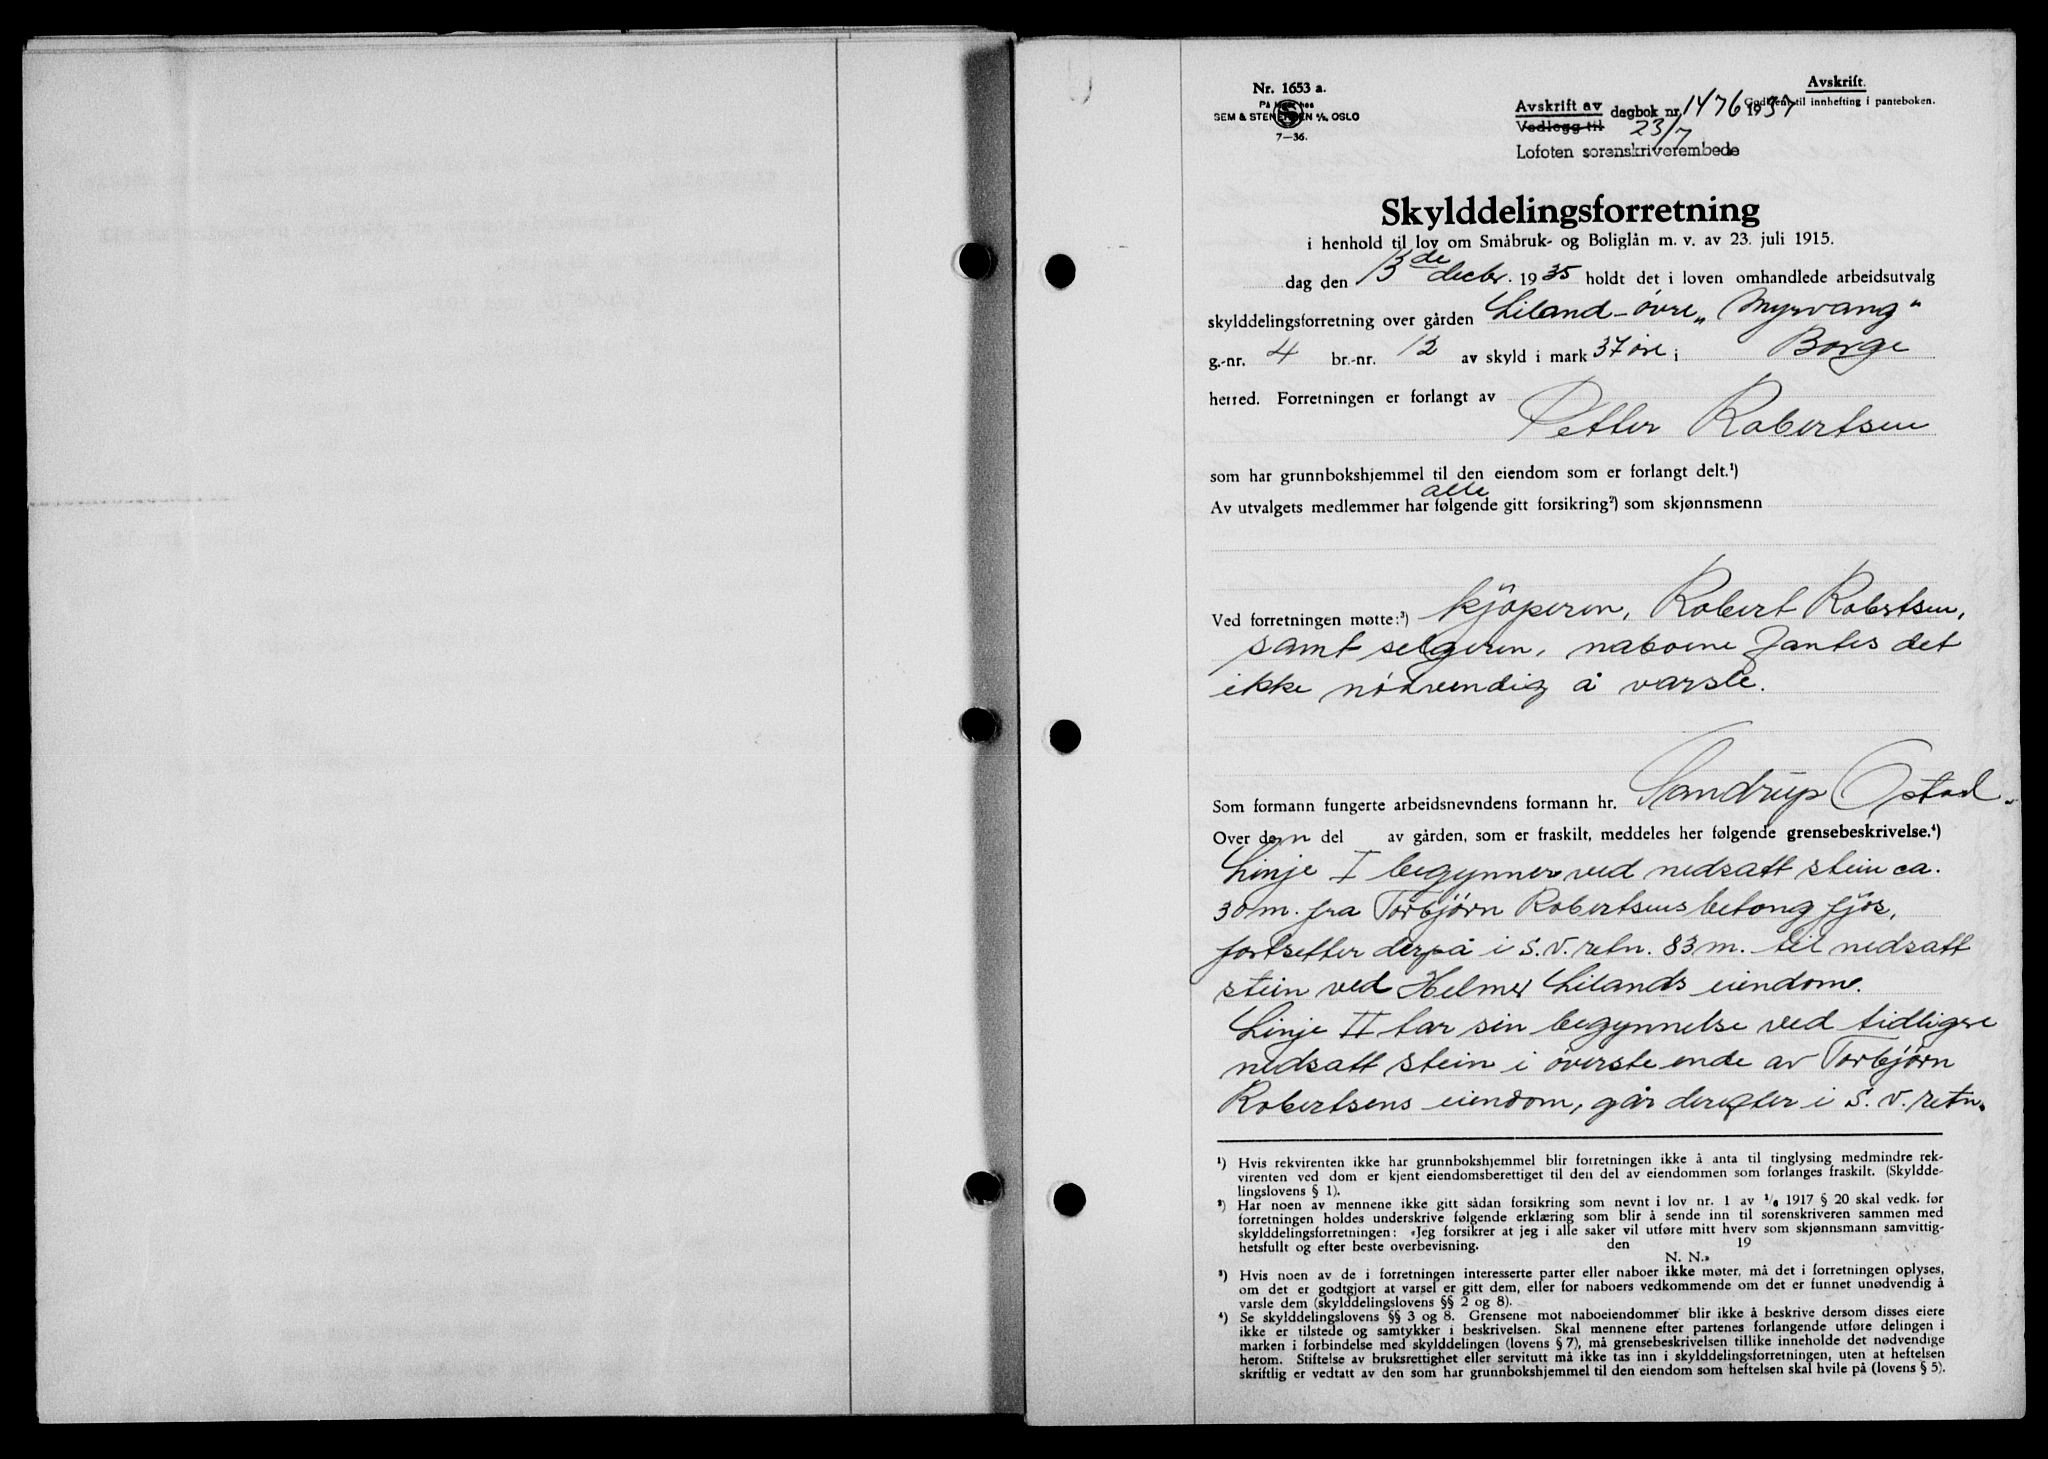 Nr. 1653 a.
På lager hos
SEM & STENERSEN A/S, OSLO
7—36.
Avskrift.
Godkjent til innhefting i panteboken.
Avskrift av dagbok nr. 1476 1937
Vedlegg til 23/7
Lofoten sorenskriverembede
Skylddelingsforretning
i henhold til lov om Småbruk- og Boliglån m. v. av 23. juli 1915.
dag den 13de decbr. 1935 holdt det i loven omhandlede arbeidsutvalg
skylddelingsforretning over gården Liland-övre „Myrvang"
g.-nr. 4 br.-nr. 12 av skyld i mark 37 öre i Borge
herred. Forretningen er forlangt av
Petter Robertsen
som har grunnbokshjemmel til den eiendom som er forlangt delt.¹)
alle
Av utvalgets medlemmer har følgende gitt forsikring²) som skjønnsmenn
Ved forretningen møtte:³) kjöperen, Robert Robertsen,
samt selgeren, naboene fantes det
ikke nödvendig å varsle.
Som formann fungerte arbeidsnevndens formann hr. Sandrup Opstad.
Over den del av gården, som er fraskilt, meddeles her følgende grensebeskrivelse.⁴)
Linje I begynner ved nedsatt stein ca.
30 m. fra Torbjörn Robertsens betong fjös,
fortsetter derpå i S.V. retn. 83 m. til nedsatt
stein ved Helmer Lilands eiendom.
Linje II tar sin begynnelse ved tidligere
nedsatt stein i överste ende av Torbjörn
Robertsens eiendom, går derefter i S.V. retn.
¹) Hvis rekvirenten ikke har grunnbokshjemmel blir forretningen ikke å anta til tinglysing medmindre rek-
virenten ved dom er kjent eiendomsberettiget til den del av eiendommen som forlanges fraskilt. (Skyldde-
lingslovens § 1).
²) Har noen av mennene ikke gitt sådan forsikring som nevnt i lov nr. 1 av ¹/₆ 1917 § 20 skal vedk. før
forretningen holdes underskrive følgende erklæring som blir å sende inn til sorenskriveren sammen med
skylddelingsforretningen: «Jeg forsikrer at jeg i alle saker vil utføre mitt hverv som skjønnsmann samvittig-
hetsfullt og efter beste overbevisning. den 19
N. N.»
³) Hvis noen av de i forretningen interesserte parter eller naboer ikke møter, må det i forretningen oplyses,
om det er godtgjort at varsel er gitt dem, eller for naboers vedkommende om det er funnet unødvendig å
varsle dem (skylddelingslovens §§ 2 og 8).
⁴) Se skylddelingslovens §§ 3 og 8. Grensene mot naboeiendommer blir ikke å beskrive dersom disses eiere
ikke er tilstede og samtykker i beskrivelsen. Skal mennene efter partenes forlangende utføre delingen i
marken i forbindelse med skylddelingen (lovens § 7), må grensebeskrivelsen tillike inneholde det nødvendige
herom. Stiftelse av bruksrettighet eller servitutt må ikke tas inn i skylddelingsforretningen, uten at heftelsen
skriftlig er vedtatt av den som har grunnbokshjemmel til den eiendom som heftelsen skal hvile på (lovens § 5).